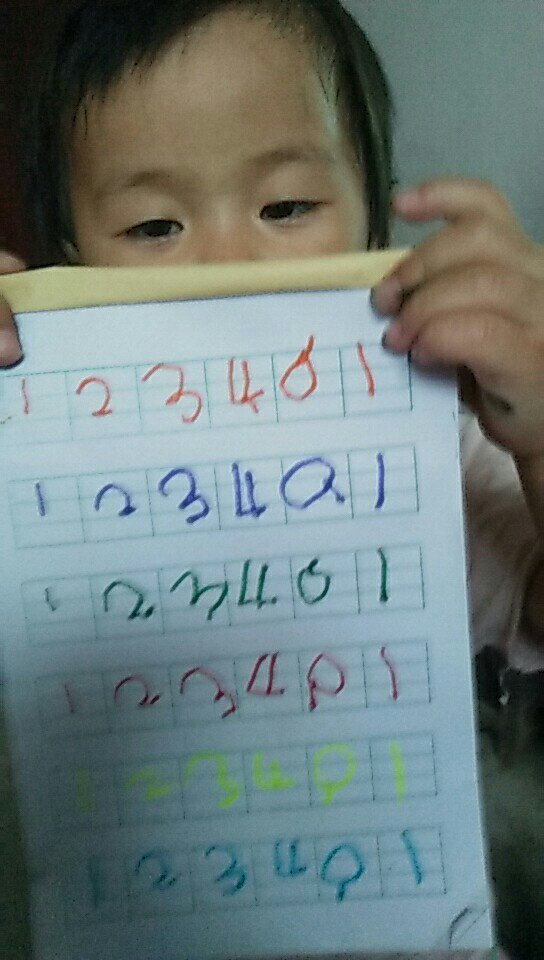 1 2 3 4 0 1
1 2 3 4 0 1
1 2 3 4 0 1
1 2 3 4 0 1
1 2 3 4 0 1
1 2 3 4 0 1